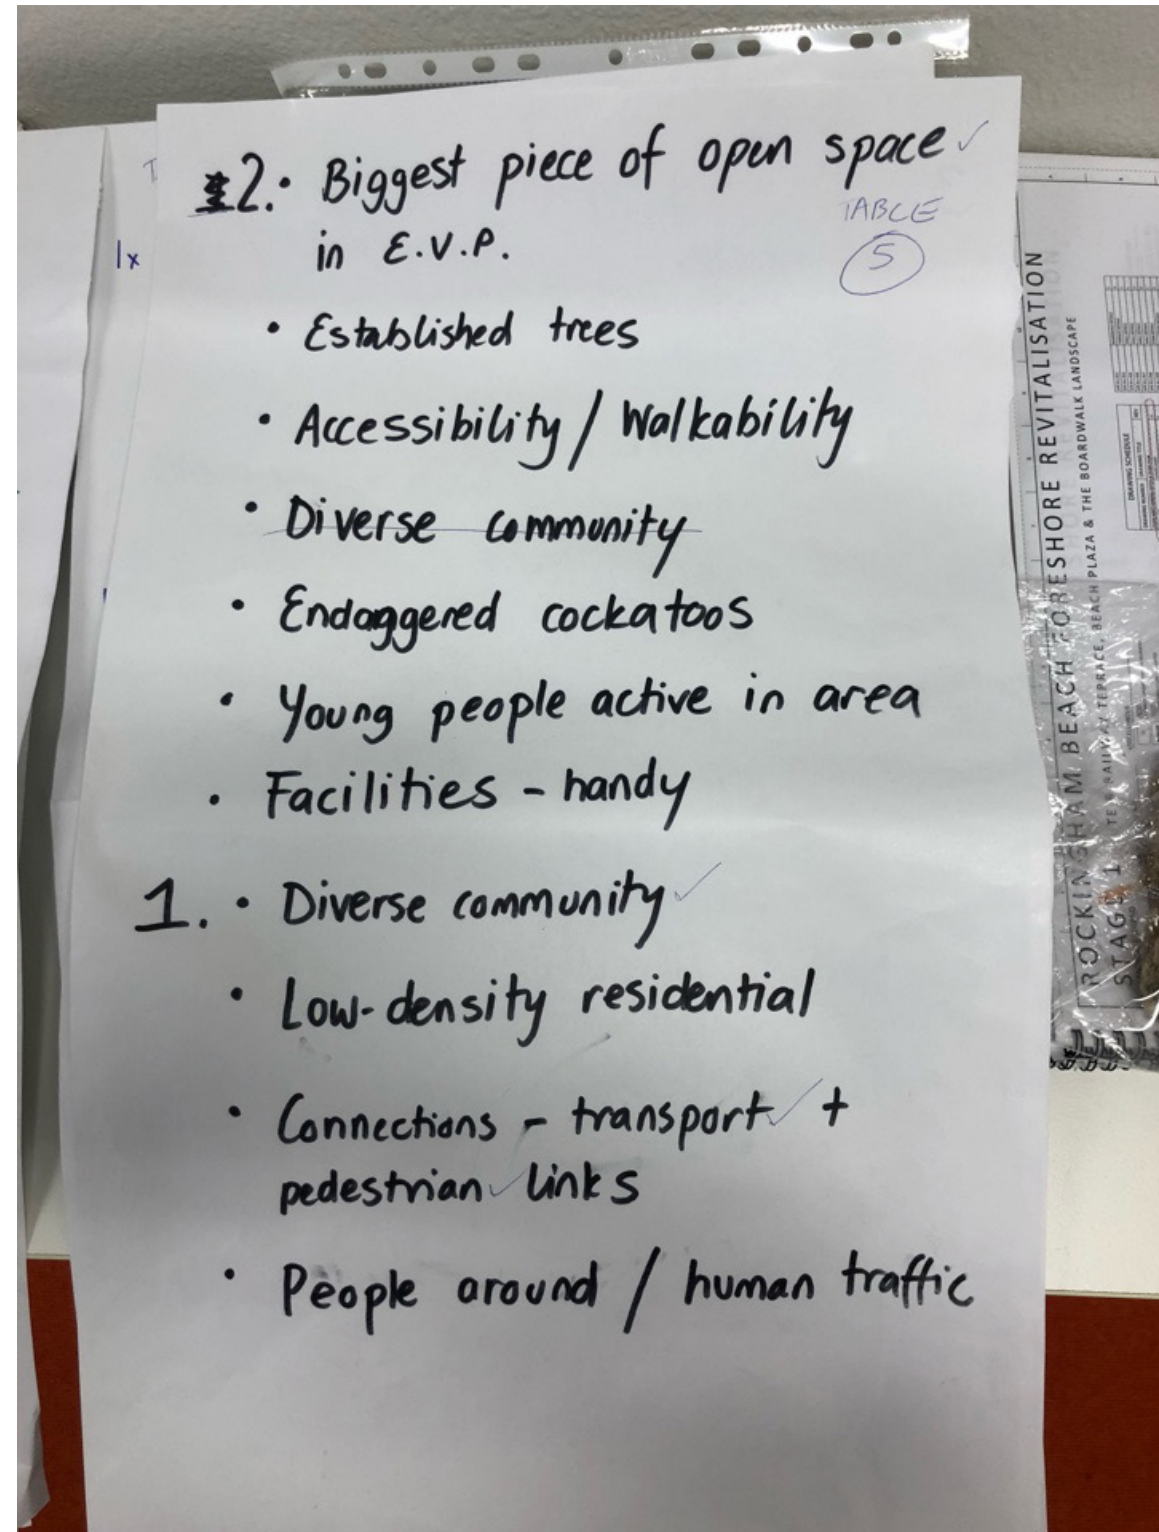 2. • Biggest piece of open space ✓
TABLE
5
in E.V.P.
• Established trees
• Accessibility / Walkability
• Diverse community
• Endaggered cockatoos
• Young people active in area
• Facilities - handy
1. • Diverse community ✓
• Low-density residential
• Connections - transport ✓ +
pedestrian ✓ links
• People around / human traffic
1x
ROCKINGHAM BEACH FORESHORE REVITALISATION
BEACH PLAZA & THE BOARDWALK LANDSCAPE
DRAWING SCHEDULE